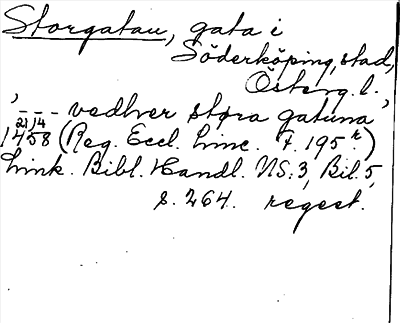 Storgatan, gata i
Söderköping, stad,
Österg. l.
'--- vedhver støra gatuna'
21/4
1458 (Reg. Eccl. Linc. F. 195 r)
Link. Bibl. Handl. NS: 3, Bil. 5,
s. 264. regest.